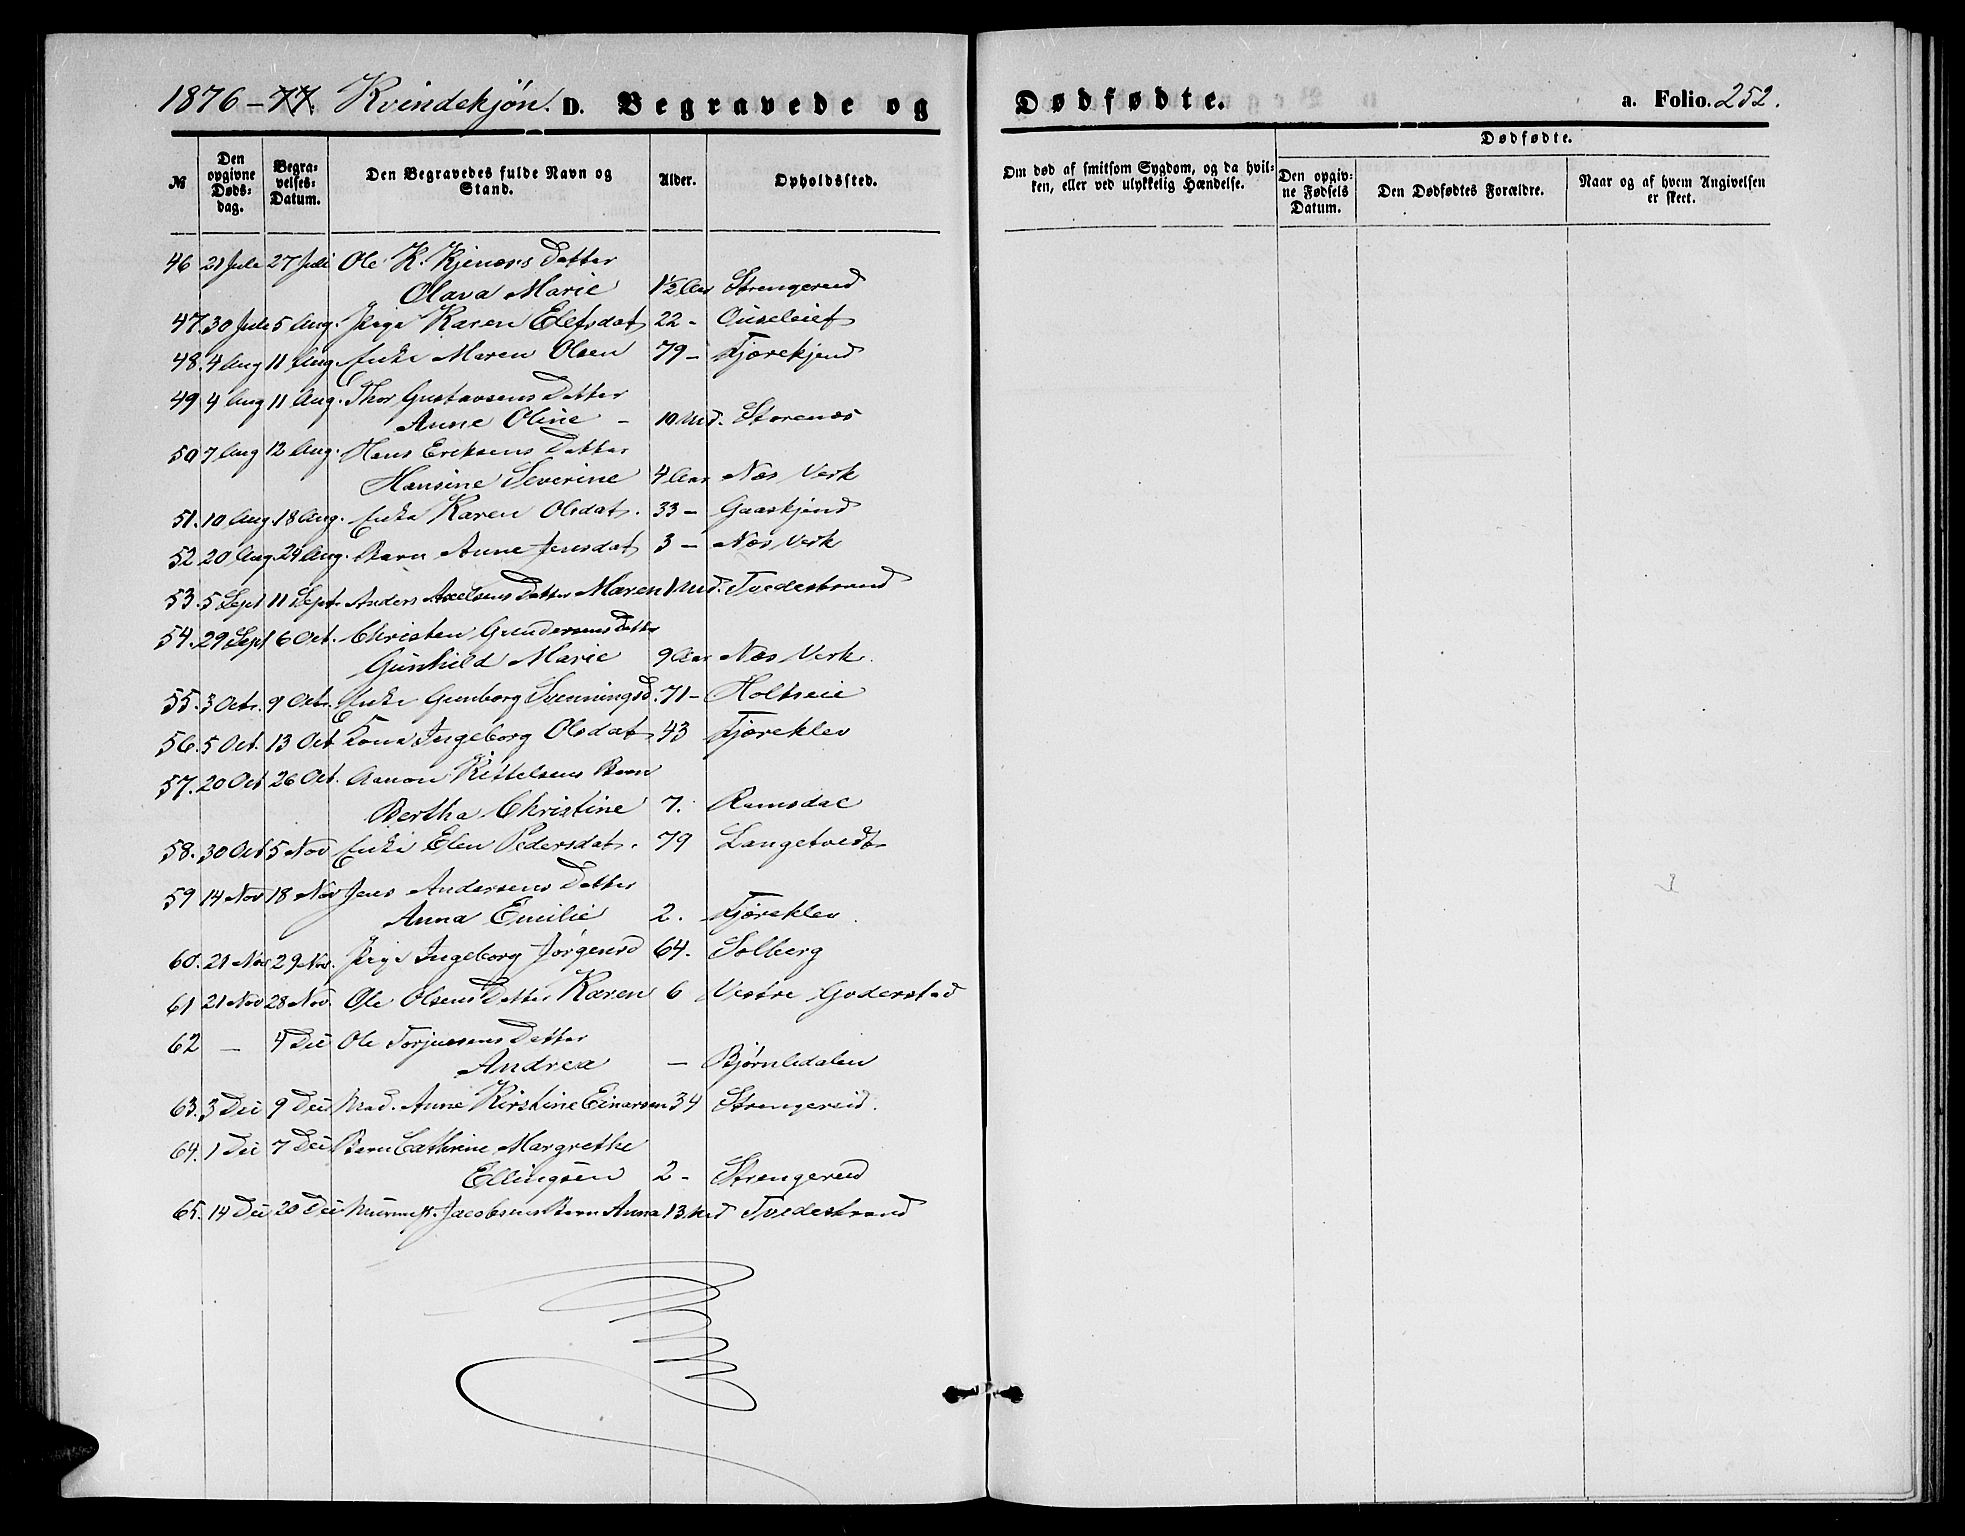 1876-77. Kvindekjøn. D. Begravede og Dødfødte. a. Folio. 252.
№ Den opgivne Døds-dag. Begra-velses-Datum. Den Begravedes fulde Navn og Stand. Alder. Opholdssted. Om død af smitsom Sygdom, og da hvil-ken, eller ved ulykkelig Hændelse. Dødfødte. Den opgiv-ne Fødsels Datum. Den Dødfødtes Forældre. Naar og af hvem Angivelsen er skeet.
46 21 Juli 27 Juli Ole K. Kjenners Datter
Olava Marie 1½ Aar Strengereid
47. 30 Juli 5 Aug. Pige Karen Elefsdat 22 -
48. 4 Aug 11 Aug. Enke Maren Olsen 79 - Fjærekjend
49 4 Aug 11 Aug. Thor Gustavsens Datter
Anne Oline - 10 Md. Storenæs
50 7 Aug 12 Aug. Hans Eriksens Datter
Hansine Severine 4 Aar Næs Verk
51. 10 Aug. 18 Aug. Enke Karen Olsdat. 33 - Gaaskjend
52 20 Aug. 24 Aug. Barn Anne Jensdat 3 - Næs Verk
53. 5 Sept 11 Sept. Anders Axelsens Datter Maren 1 Md. Tvedestrand
54. 29 Sept 6 Oct. Christen Gundersens Datter
Gunhild Marie 9 Aar Næs Verk.
55. 3 Oct. 9 Oct. Enke Gunborg Svenningsd. 71 - Holtseie
56. 5 Oct. 13 Oct Kone Ingeborg Olsdat 43 Fjæreklev
57. 20 Oct 26 Oct. Aanon Kittelsens Barn
Bertha Christine 7. Ramsdal
58. 30 Oct 5 Nov Enke Elen Pedersdat. 79 Langetvedt
59 14 Nov 18 Nov Jens Andersens Datter
Anna Emilie 2. Fjæreklev.
60. 21 Nov 29 Nov. Pige Ingeborg Jørgensd 64. Solberg
61 21 Nov 28 Nov. Ole Olsens Datter Karen 6 Vestre Goderstad
62 - 4 Dec Ole Torjussens Datter
Andrea - Bjørnledalen
63. 3 Dec 9 Dec Mad. Anne Kirstine Einersen 34 Strengereid.
64. 1 Dec 7 Dec Barn Cathrine Margrethe
Ellingsen 2 - Strengereid
65. 14 Dec 20 Dec Murm. H. Jacobsens Barn Anna 13 Md Tvedestrand